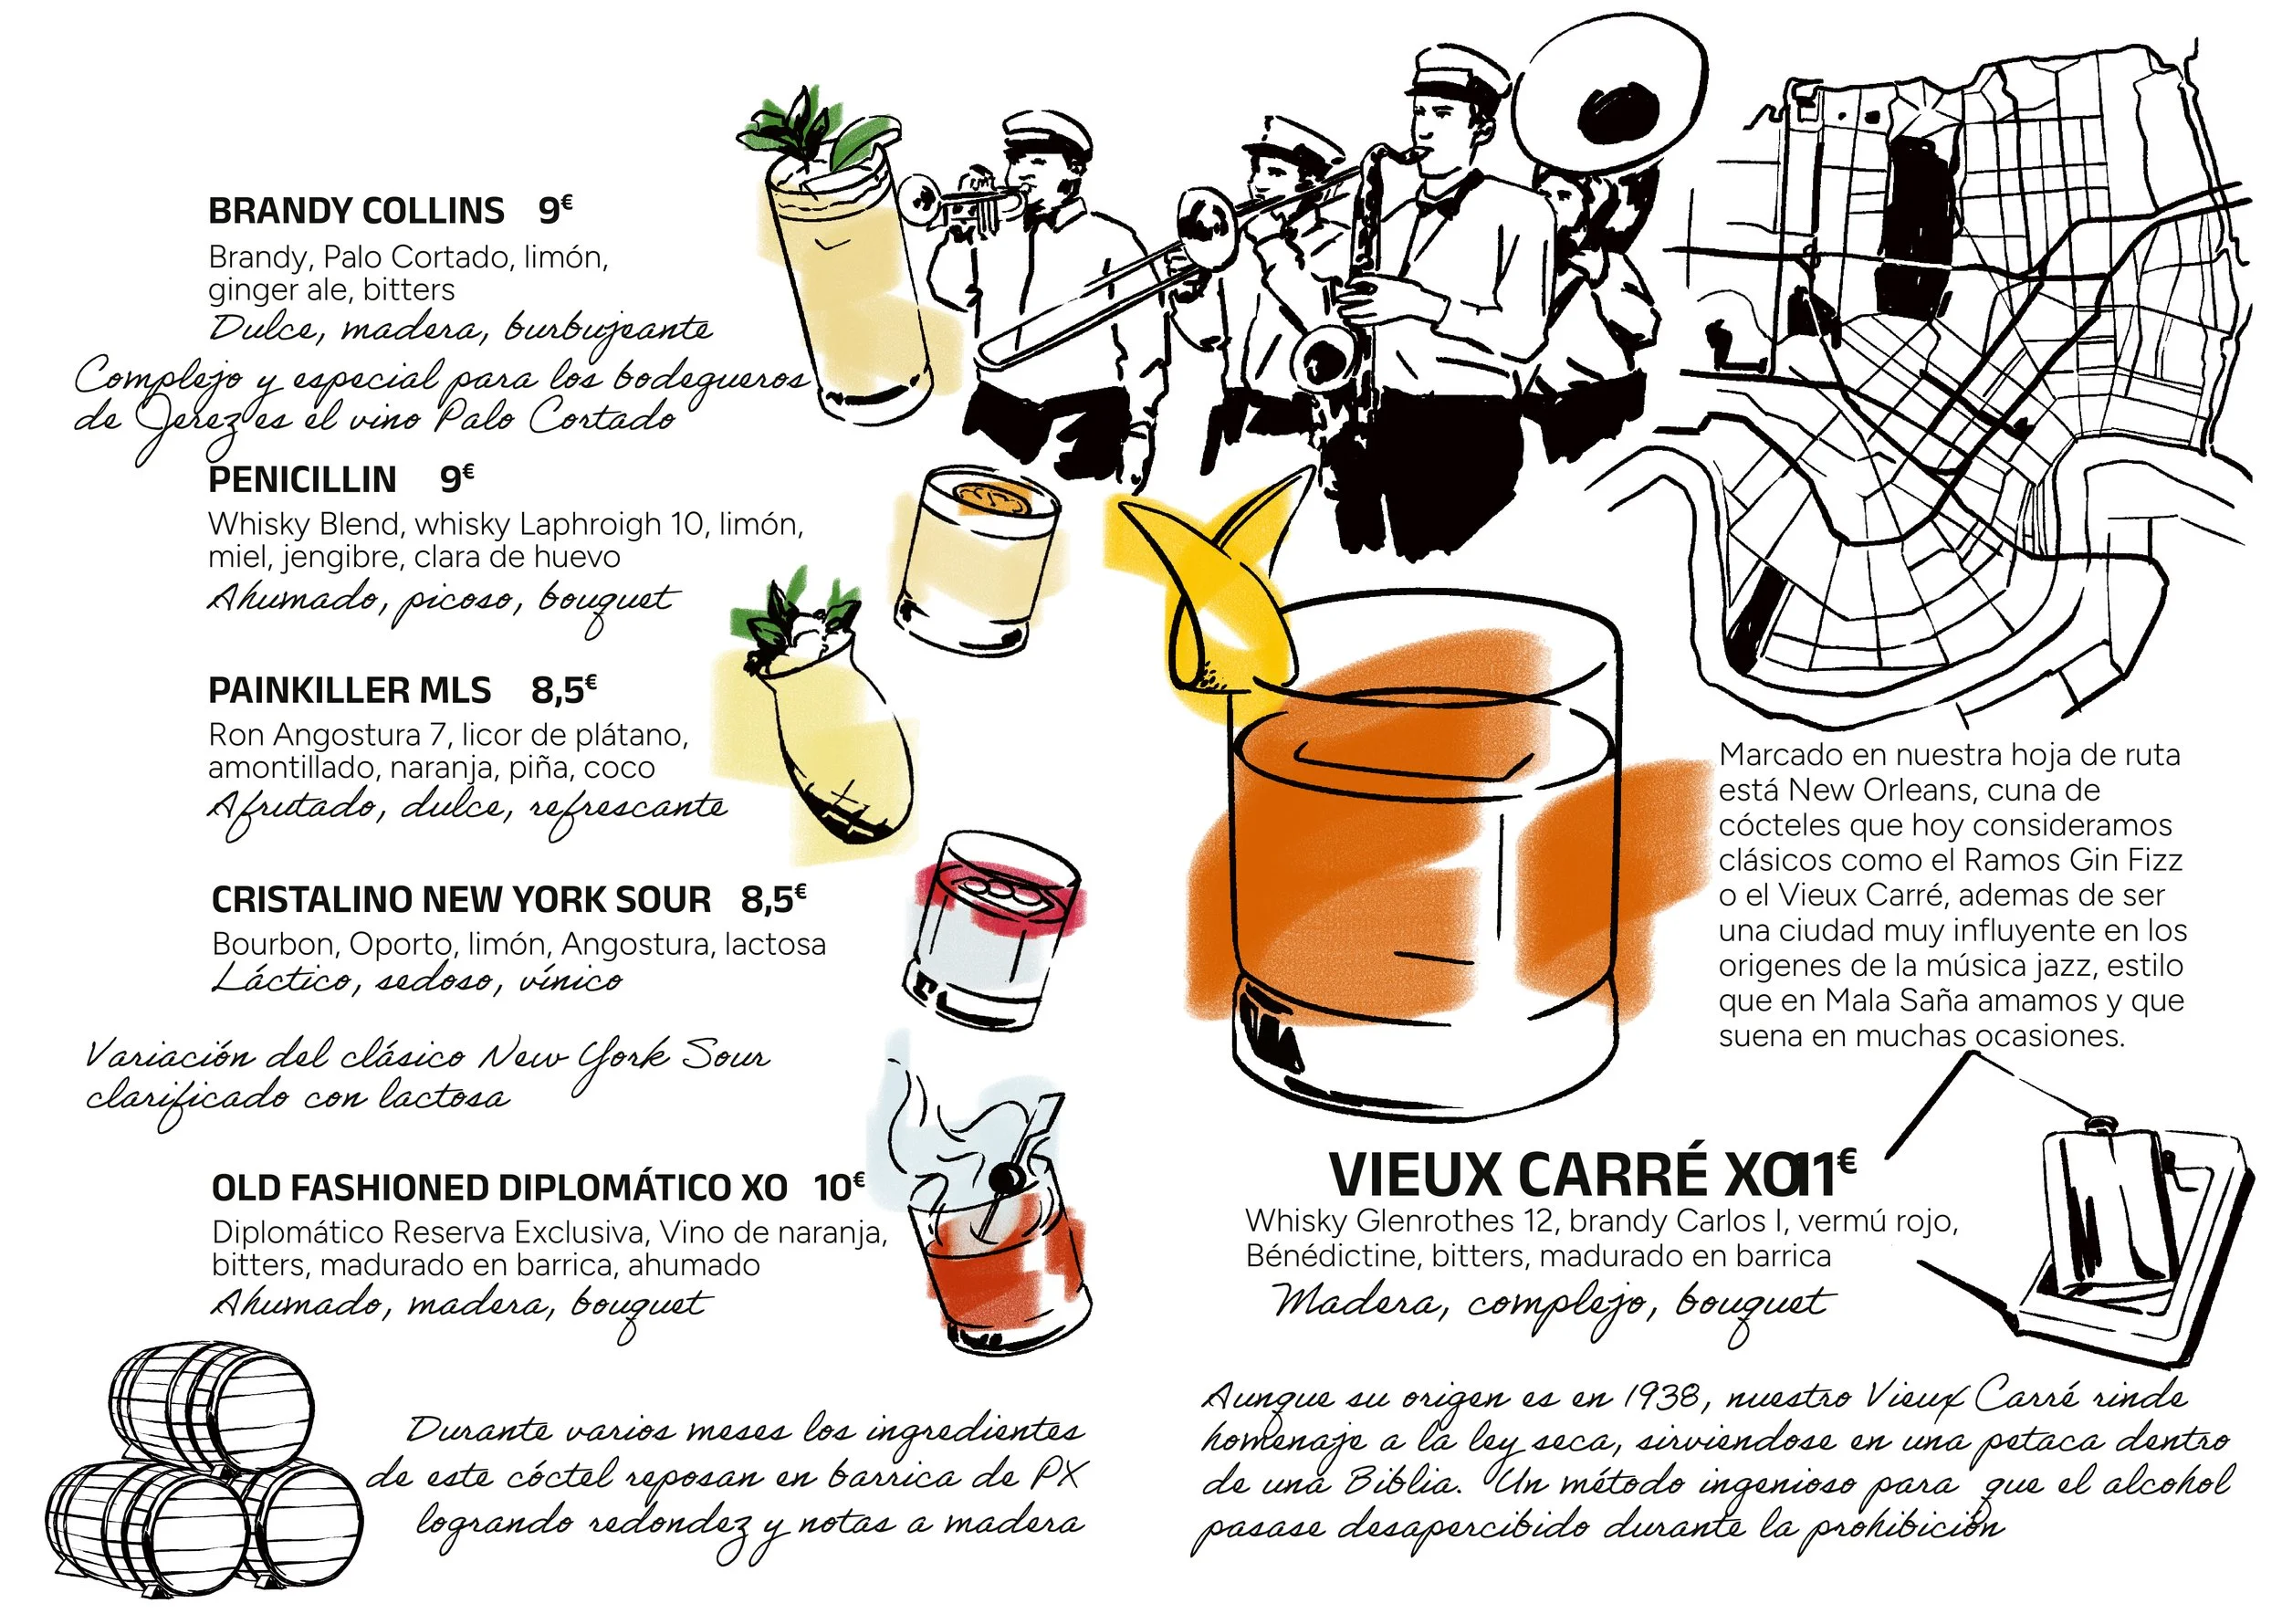 BRANDY COLLINS 9€
Brandy, Palo Cortado, limón,
ginger ale, bitters
Dulce, madera, burbujeante
Complejo y especial para los bodegueros
de Jerez es el vino Palo Cortado
PENICILLIN 9€
Whisky Blend, whisky Laphroigh 10, limón,
miel, jengibre, clara de huevo
Ahumado, picoso, bouquet
PAINKILLER MLS 8,5€
Ron Angostura 7, licor de plátano,
amontillado, naranja, piña, coco
Afrutado, dulce, refrescante
CRISTALINO NEW YORK SOUR 8,5€
Bourbon, Oporto, limón, Angostura, lactosa
Láctico, sedoso, vínico
Variación del clásico New York Sour
clarificado con lactosa
OLD FASHIONED DIPLOMÁTICO XO 10€
Diplomático Reserva Exclusiva, Vino de naranja,
bitters, madurado en barrica, ahumado
Ahumado, madera, bouquet
Durante varios meses los ingredientes
de este cóctel reposan en barrica de PX
logrando redondez y notas a madera
Marcado en nuestra hoja de ruta
está New Orleans, cuna de
cócteles que hoy consideramos
clásicos como el Ramos Gin Fizz
o el Vieux Carré, ademas de ser
una ciudad muy influyente en los
origenes de la música jazz, estilo
que en Mala Saña amamos y que
suena en muchas ocasiones.
VIEUX CARRÉ XO 11€
Whisky Glenrothes 12, brandy Carlos I, vermú rojo,
Bénédictine, bitters, madurado en barrica
Madera, complejo, bouquet
Aunque su origen es en 1938, nuestro Vieux Carré rinde
homenaje a la ley seca, sirviendose en una petaca dentro
de una Biblia. Un método ingenioso para que el alcohol
pasase desapercibido durante la prohibición